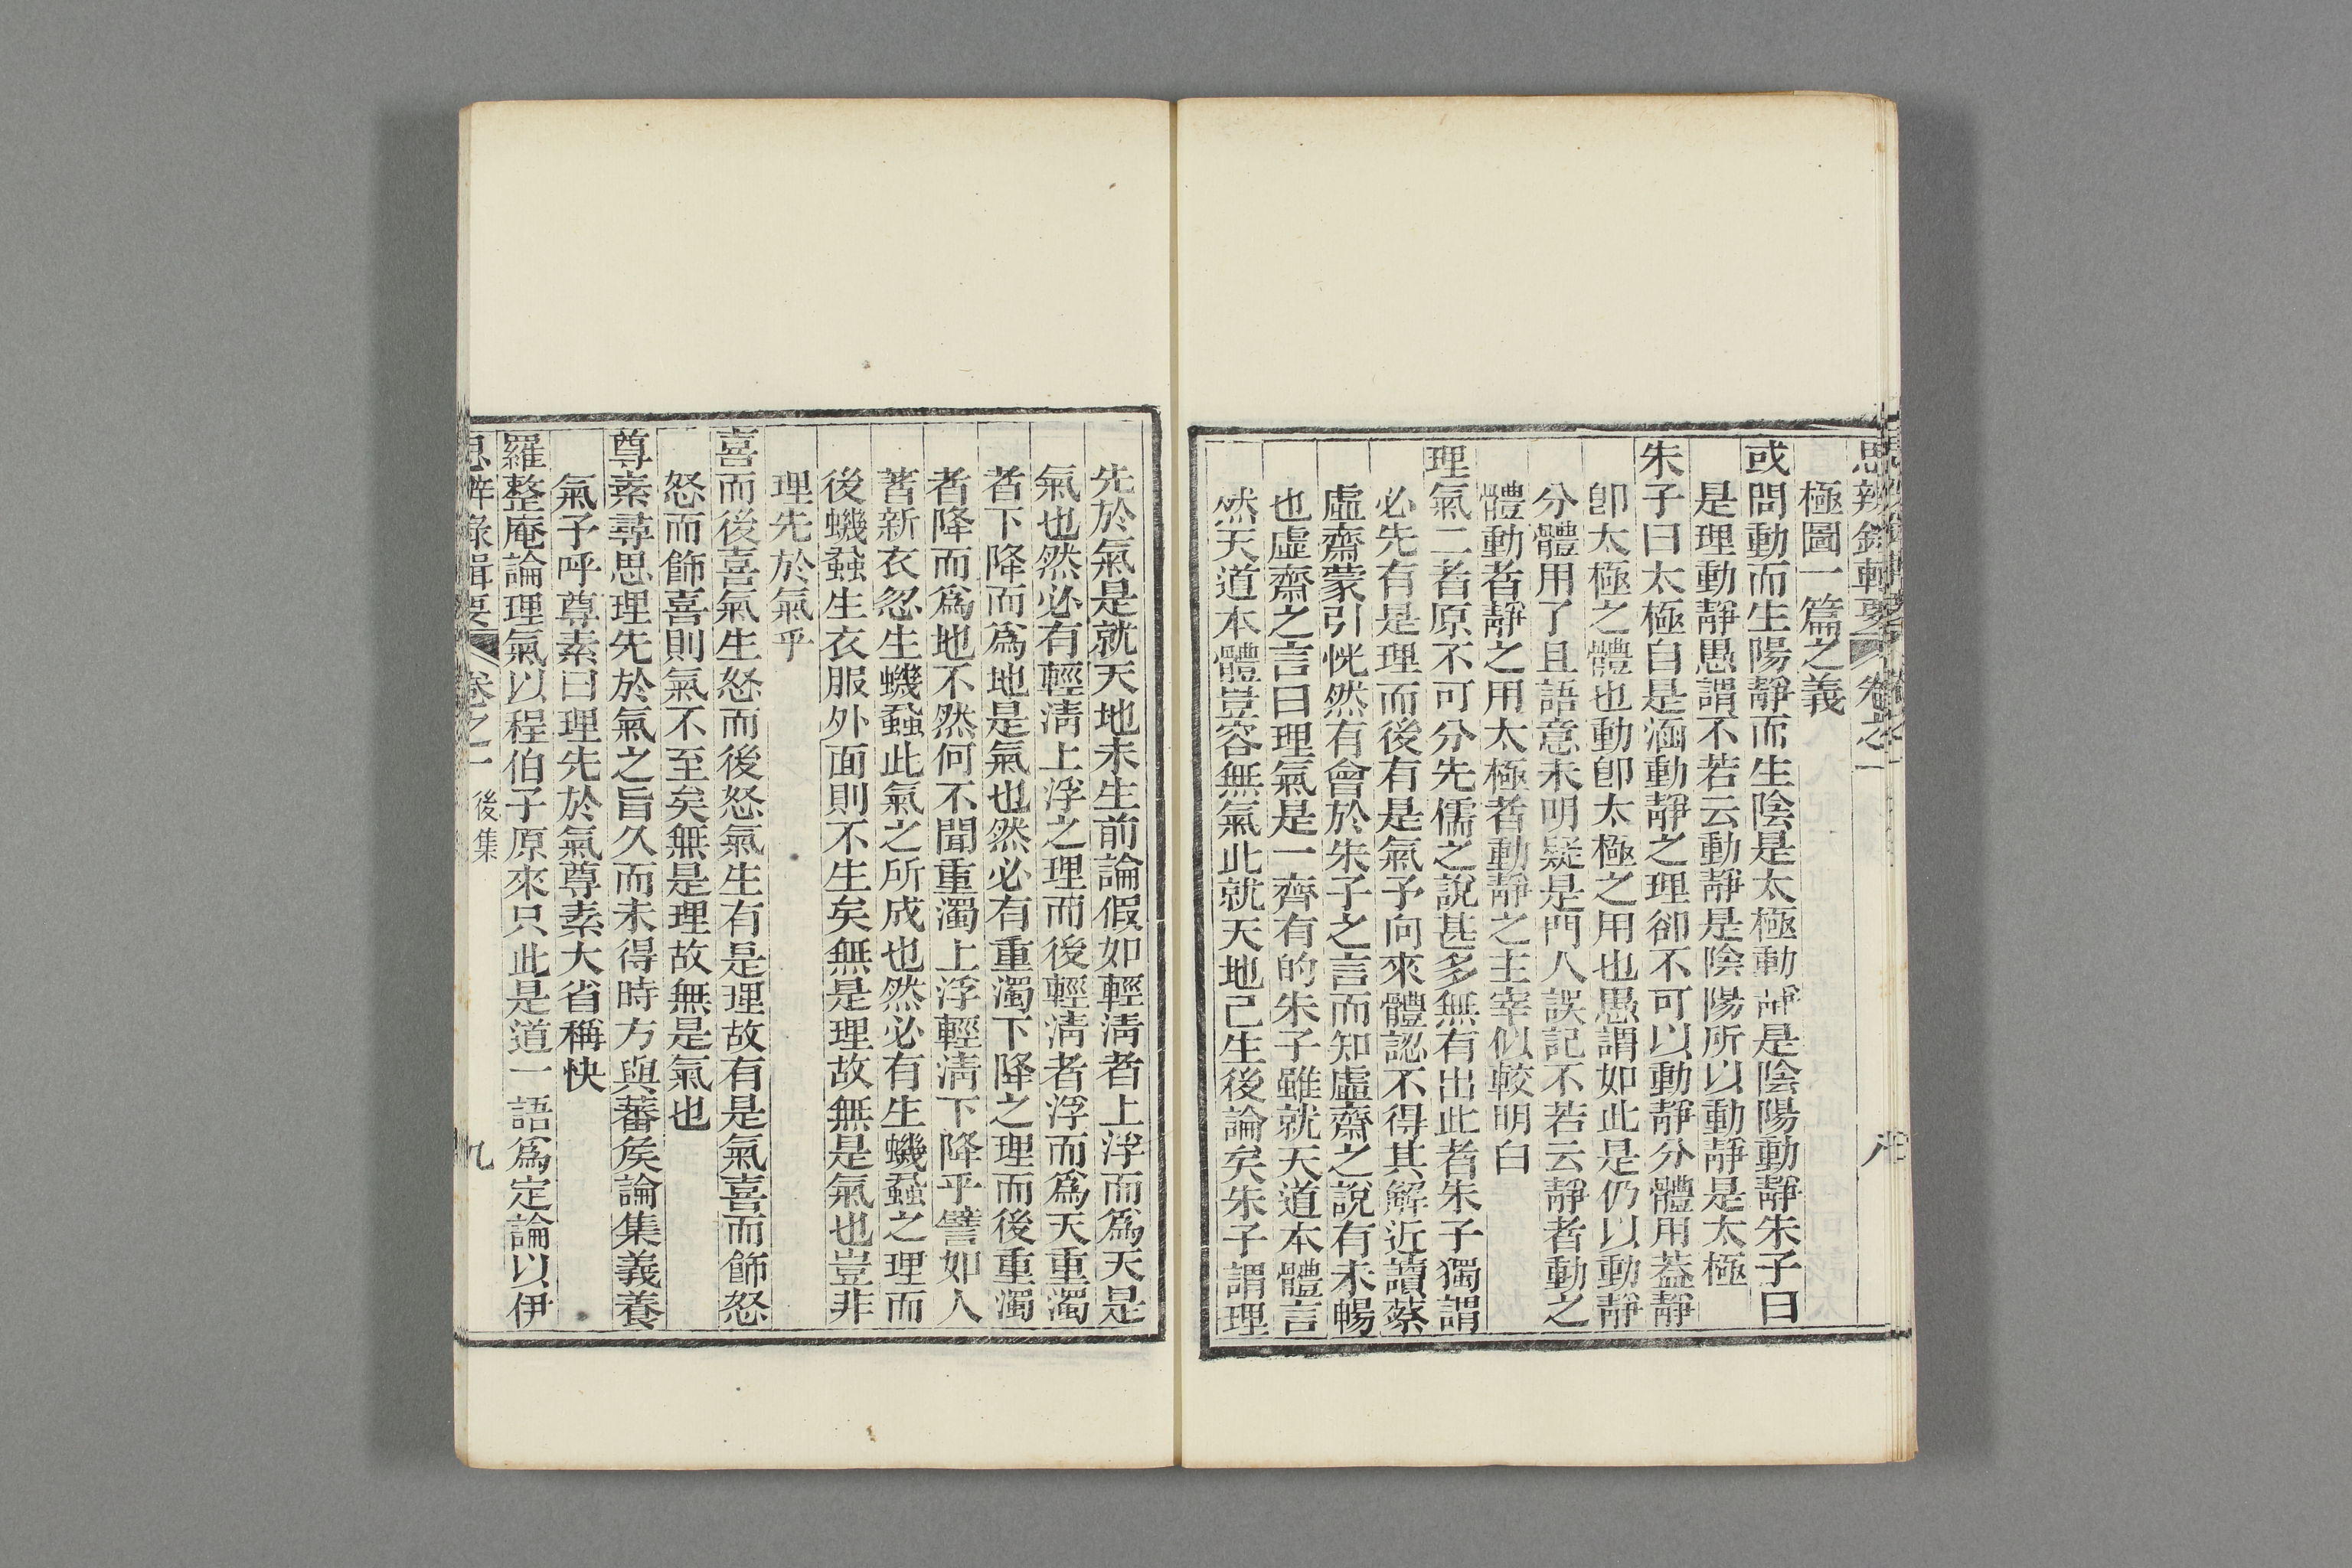 思辨錄輯要 卷之一 八
極圖一篇之義
或問動而生陽靜而生陰是太極動靜是陰陽動靜朱子曰
是理動靜愚謂不若云動靜是陰陽所以動靜是太極
朱子曰太極自是涵動靜之理卻不可以動靜分體用蓋靜
卽太極之體也動卽太極之用也愚謂如此是仍以動靜
分體用了且語意未明疑是門人誤記不若云靜者動之
體動者靜之用太極者動靜之主宰似較明白
理氣二者原不可分先儒之說甚多無有出此者朱子獨謂
必先有是理而後有是氣予向來體認不得其解近讀蔡
虛齋蒙引恍然有會於朱子之言而知虛齋之說有未暢
也虛齋之言曰理氣是一齊有的朱子雖就天道本體言
然天道本體豈容無氣此就天地已生後論矣朱子謂理
先於氣是就天地未生前論假如輕淸者上浮而爲天是
氣也然必有輕淸上浮之理而後輕淸者浮而爲天重濁
者下降而爲地是氣也然必有重濁下降之理而後重濁
者降而爲地不然何不聞重濁上浮輕淸下降乎譬如人
著新衣忽生蟣蝨此氣之所成也然必有生蟣蝨之理而
後蟣蝨生衣服外面則不生矣無是理故無是氣也豈非
理先於氣乎
喜而後喜氣生怒而後怒氣生有是理故有是氣喜而飾怒
怒而飾喜則氣不至矣無是理故無是氣也
尊素尋思理先於氣之旨久而未得時方與蕃矦論集義養
氣予呼尊素曰理先於氣尊素大省稱快
羅整庵論理氣以程伯子原來只此是道一語爲定論以伊
思辨錄輯要 卷之一 後集 九